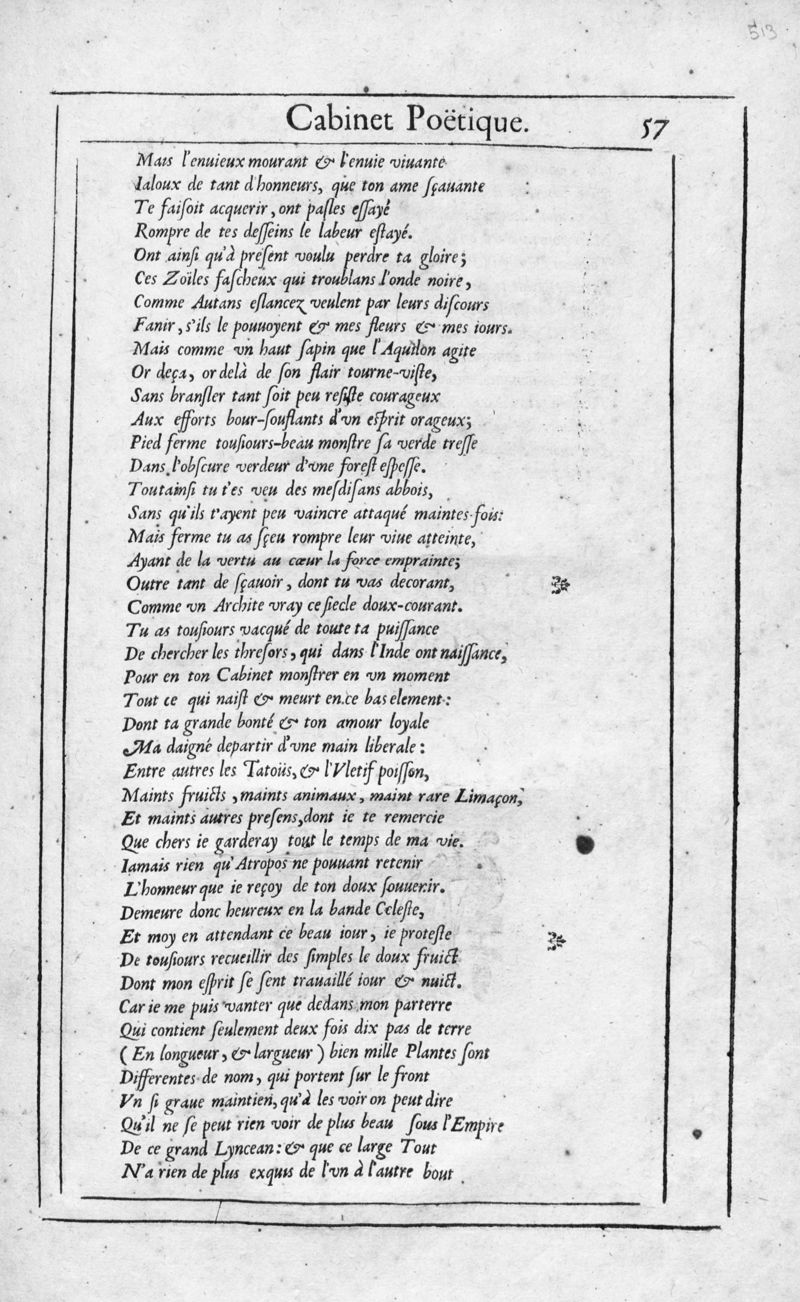 513
Cabinet Poëtique. 57
Mais l'enuieux mourant & l'enuie viuante
Ialoux de tant d'honneurs, que ton ame ſçauante
Te faiſoit acquerir, ont paſles eſſayé
Rompre de tes deſſeins le labeur eſtayé.
Ont ainſi qu'à preſent voulu perdre ta gloire;
Ces Zoïles faſcheux qui troublans l'onde noire,
Comme Autans eſlancez veulent par leurs diſcours
Fanir, s'ils le pouuoyent & mes fleurs & mes iours.
Mais comme vn haut ſapin que l'Aquilon agite
Or deça, or delà de ſon flair tourne-viſte,
Sans branſler tant ſoit peu reſiſte courageux
Aux efforts bour-ſouflants d'vn eſprit orageux;
Pied ferme touſiours-beau monſtre ſa verde treſſe
Dans l'obſcure verdeur d'vne foreſt eſpeſſe.
Toutainſi tu t'es veu des meſdiſans abbois,
Sans qu'ils t'ayent peu vaincre attaqué maintes fois:
Mais ferme tu as ſçeu rompre leur viue atteinte,
Ayant de la vertu au cœur la force emprainte;
Outre tant de ſçauoir, dont tu vas decorant,
Comme vn Archite vray ce ſiecle doux-courant.
Tu as touſiours vacqué de toute ta puiſſance
De chercher les threſors, qui dans l'Inde ont naiſſance,
Pour en ton Cabinet monſtrer en vn moment
Tout ce qui naiſt & meurt en ce bas element:
Dont ta grande bonté & ton amour loyale
Ma daigné departir d'vne main liberale:
Entre autres les Tatoüs, & l'Vletif poiſſon,
Maints fruicts, maints animaux, maint rare Limaçon,
Et maints autres preſens, dont ie te remercie
Que chers ie garderay tout le temps de ma vie.
Iamais rien qu'Atropos ne pouuant retenir
L'honneur que ie reçoy de ton doux ſouuenir.
Demeure donc heureux en la bande Celeſte,
Et moy en attendant ce beau iour, ie proteſte
De touſiours recueillir des ſimples le doux fruict
Dont mon eſprit ſe ſent trauaillé iour & nuict.
Car ie me puis vanter que dedans mon parterre
Qui contient ſeulement deux fois dix pas de terre
(En longueur, & largueur) bien mille Plantes ſont
Differentes de nom, qui portent ſur le front
Vn ſi graue maintien, qu'à les voir on peut dire
Qu'il ne ſe peut rien voir de plus beau ſous l'Empire
De ce grand Lyncean: & que ce large Tout
N'a rien de plus exquis de l'vn à l'autre bout